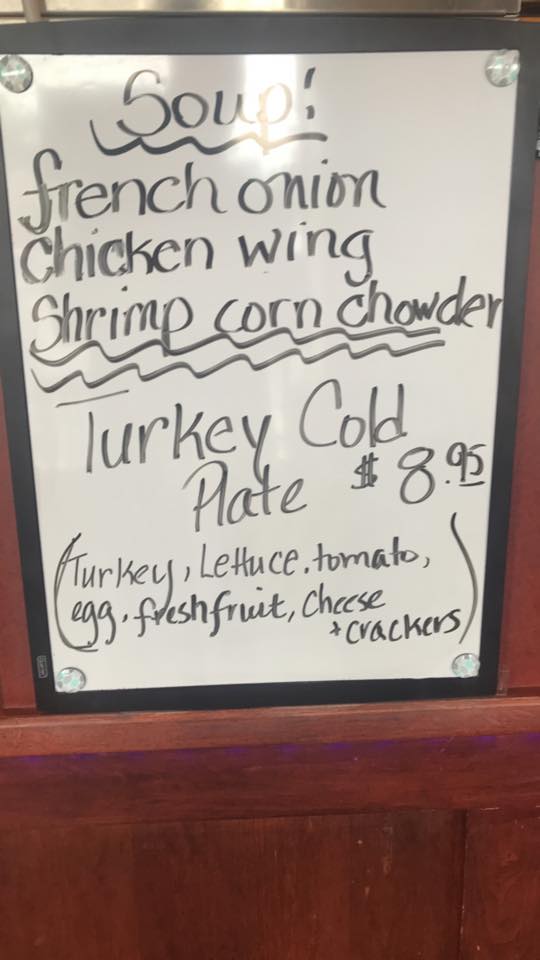 Soup!
french onion
Chicken wing
Shrimp corn chowder
Turkey Cold
Plate $8.95
(Turkey, Lettuce, tomato,
egg, fresh fruit, Cheese
+ crackers)